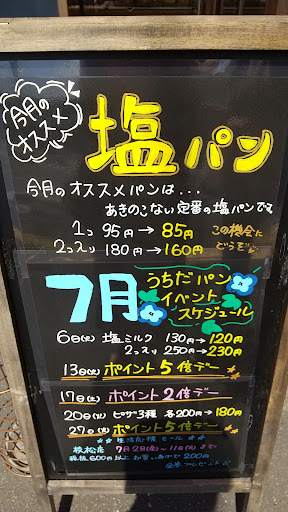 今月の
オススメ
塩パン
今月のオススメパンは...
あきのこない定番の塩パンです
1コ 95円→85円
2コ入り 180円→160円
この機会に
どうぞ
7月
うちだパン
イベント
スケジュール
6日(火) 塩ミルク 130円→120円
2コ入り 250円→230円
13日(火) ポイント5倍デー
17日(土) ポイント2倍デー
20日(火) ピザ3種 各200円→180円
27日(火) ポイント5倍デー
生活応援セール
枝松店 7月2日(金)〜11日(日)まで
600円以上お買いあげで200円
金券プレゼント